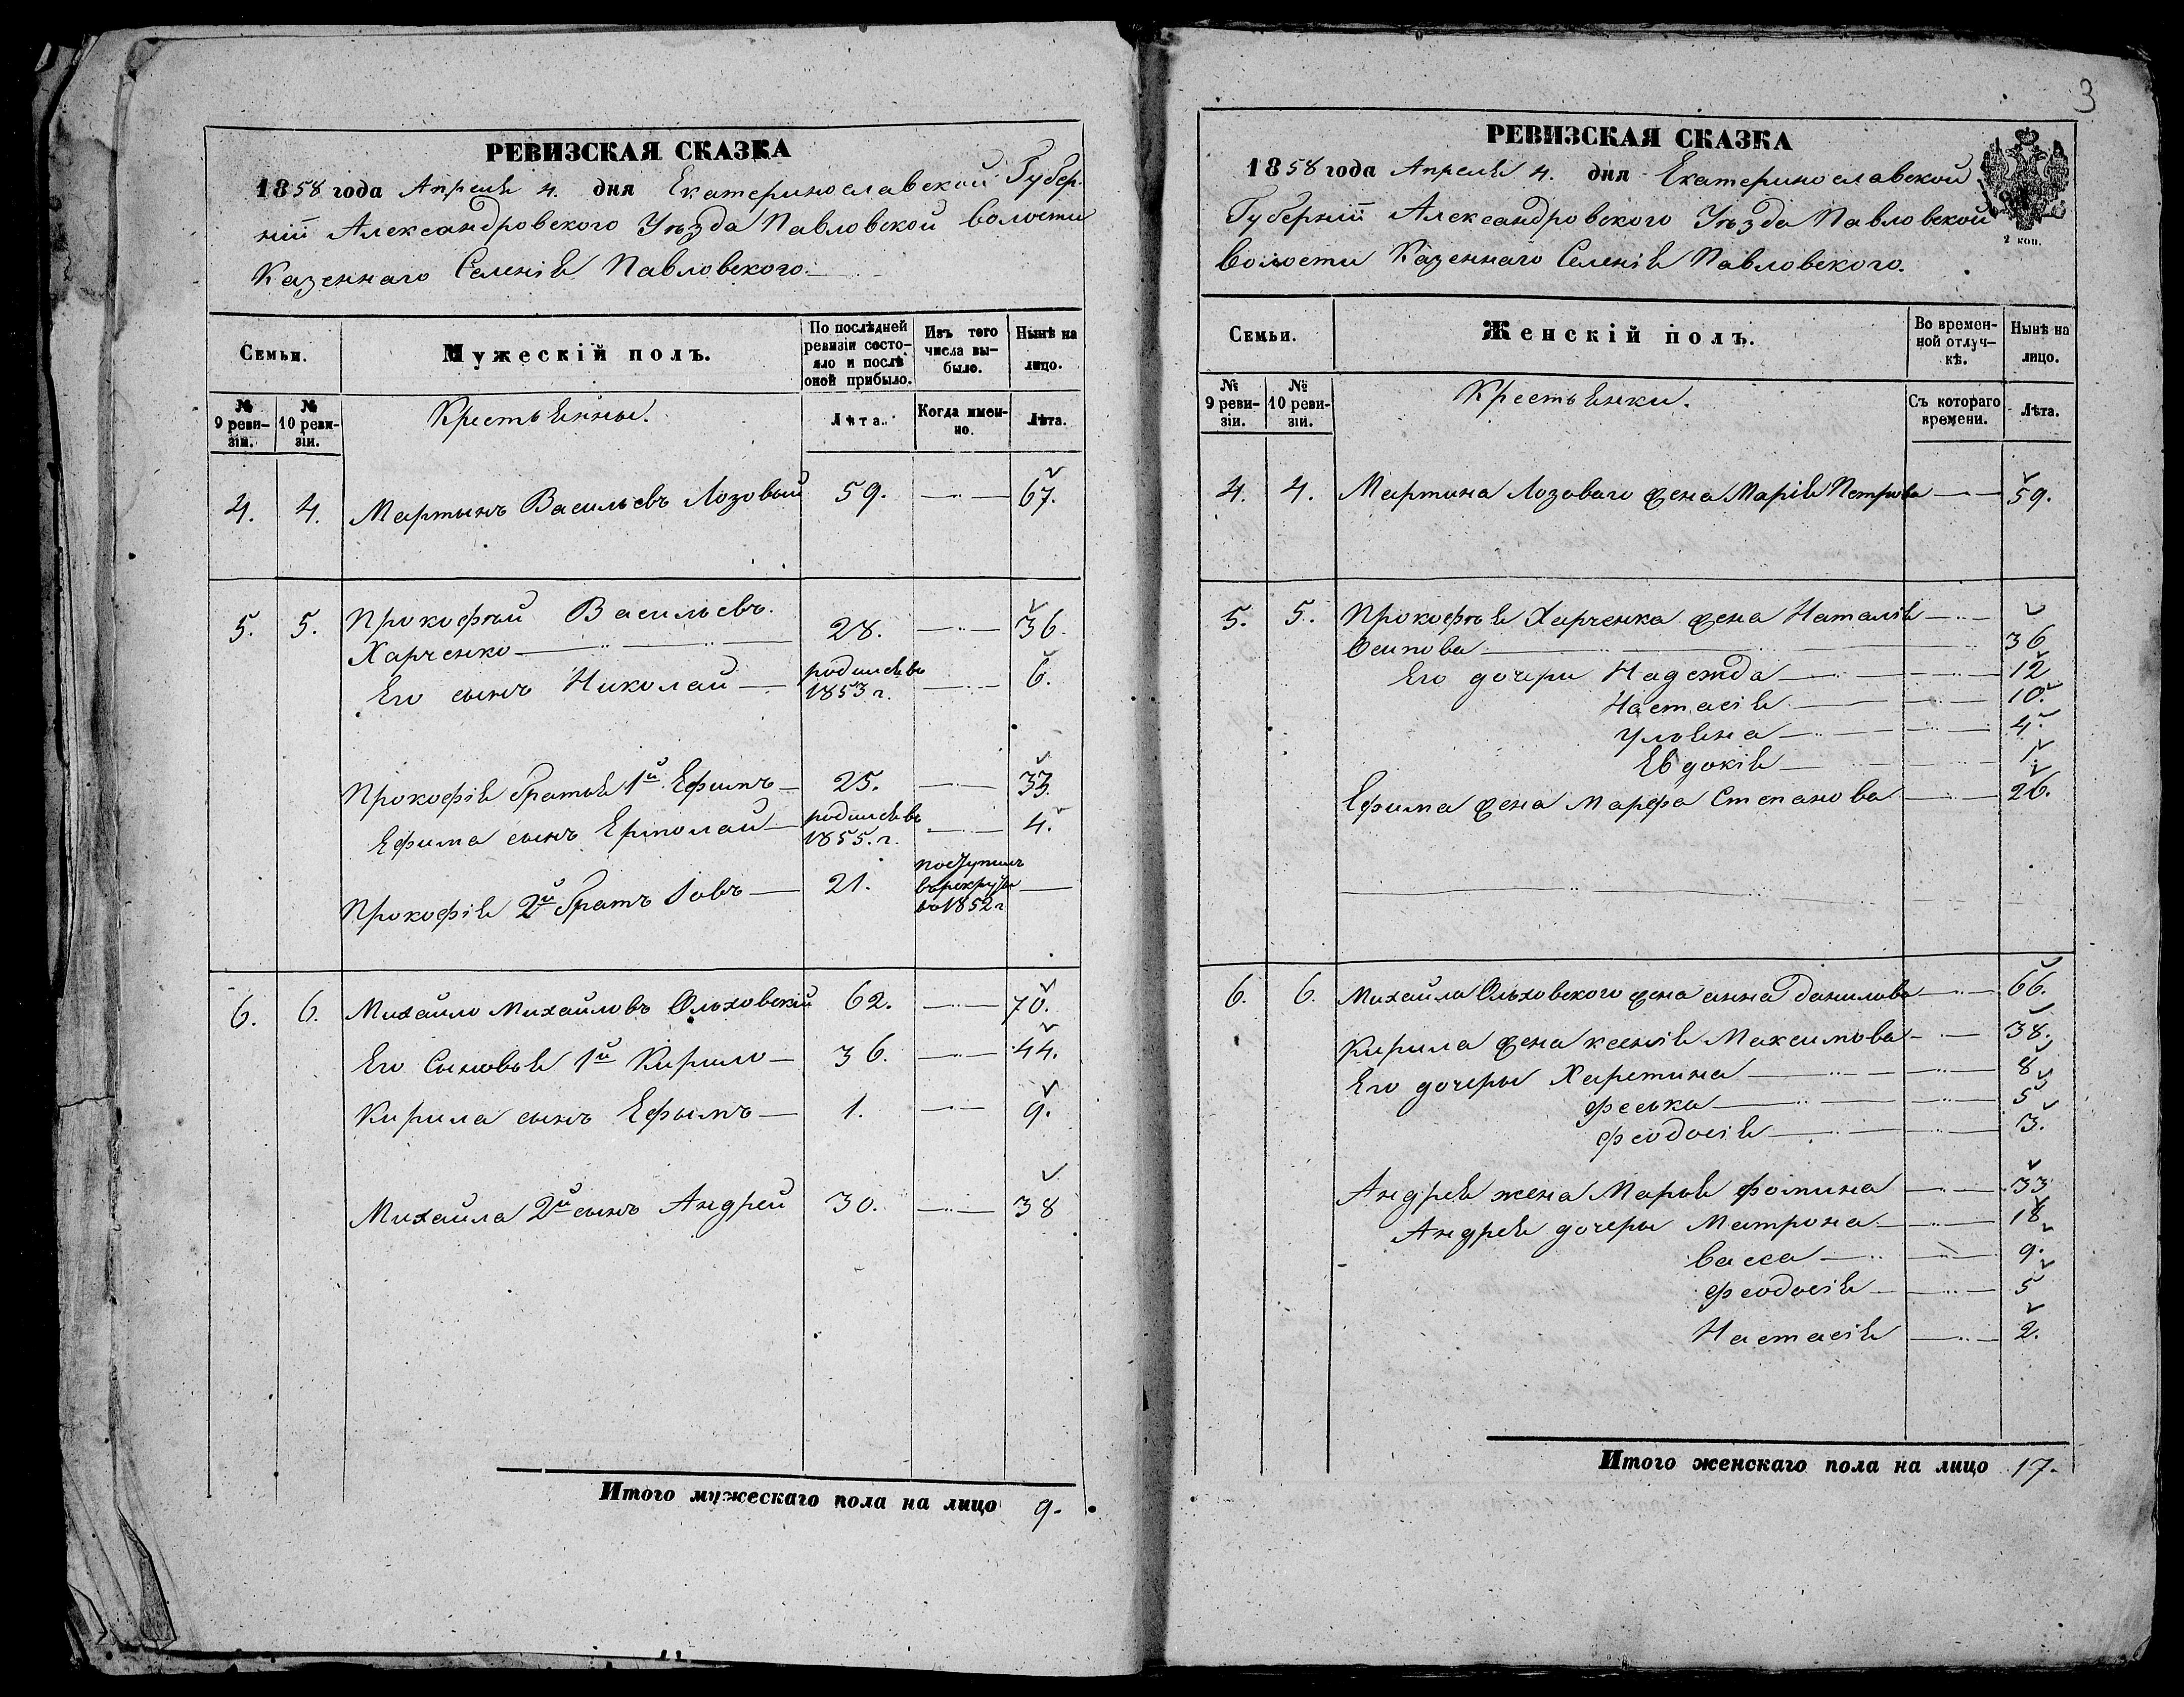 РЕВИЗСКАЯ СКАЗКА
1858 года Апреля 4. дня Екатеринославской Губер-
ніи Александровского Уѣзда Павловской волости
Казеннаго Селенія Павловского.
Семьи.
Мужескій полъ.
По послѣдней ревизіи состо-
яло и послѣ оной прибыло.
Изъ того числа вы-
было.
Нынѣ на лицо.
№ 9 реви-
зіи.
№ 10 реви-
зіи.
Крестьянны.
Лѣта.
Когда имен-
но.
Лѣта.
4. 4. Мартынъ Васильевъ Лозовый 59. 67.
5. 5. Прокофѣй Васильевъ.
Харченко 28. 36.
Его сынъ Николай родился въ 1853 г. 6.
Прокофія братья 1й Ефимъ 25. 33.
Ефима сынъ Ермолай родился въ 1855. г. 4.
Прокофія 2й братъ Іовъ 21. поступилъ въ рекруты въ 1852 г
6. 6. Михайло Михайловъ Ольховскій 62. 70.
Его Сыновья 1й Кирило 36. 44.
Кирила сынъ Ефымъ 1. 9.
Михайла 2й сынъ Андрей 30. 38
Итого мужескаго пола на лицо 9.
3
РЕВИЗСКАЯ СКАЗКА
1858 года Апреля 4. дня Екатеринославской
Губерніи Александровского Уѣзда Павловской
волости Казеннаго Селенія Павловского.
2 коп.
Семьи.
Женскій полъ.
Во времен-
ной отлуч-
кѣ.
Нынѣ на лицо.
№ 9 реви-
зіи.
№ 10 реви-
зіи.
Крестьянки.
Съ котораго времени.
Лѣта.
4. 4. Мартина Лозоваго жена Марія Петрова 59.
5. 5. Прокофѣя Харченка жена Наталія
Осипова 36
Его дочери Надежда 12
Настасія 10.
Ульяна 4.
Евдокія 1.
Ефима жена Марфа Степанова 26.
6. 6. Михайла Ольховского жена анна данилова 66.
Кирила жена ксенія Максимова 38.
Его дочеры Харетина 8
феська 5
феодосія 3.
Андрея жена Марья фомина 33
Андрея дочеры Матрона 18
васса 9.
феодосія 5
Настасія 2.
Итого женскаго пола на лицо 17.